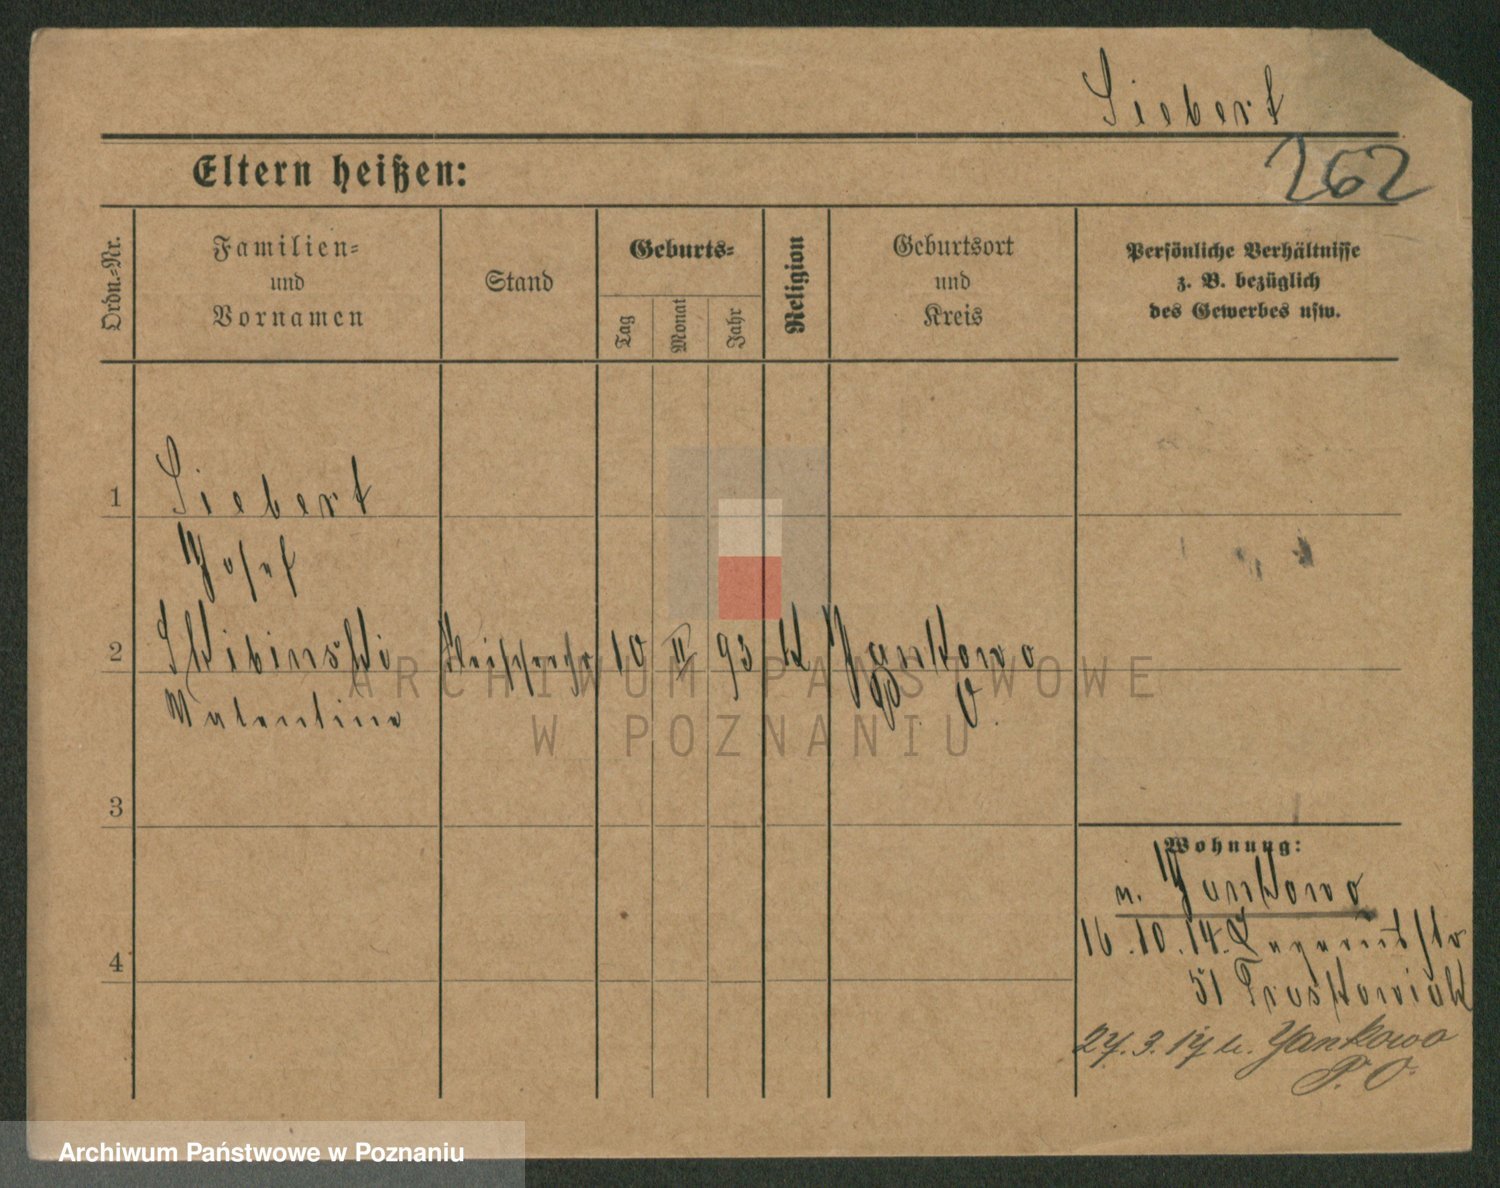 Siebert
Eltern heißen:
262
Ordn.-Nr.
Familien-
und
Vornamen
Stand
Geburts-
Tag
Monat
Jahr
Religion
Geburtsort
und
Kreis
Persönliche Verhältnisse
z. B. bezüglich
des Gewerbes usw.
1
Siebert
Josef
2
Skibinski 10 II 93 K Jankowo
Valentine
ARCHIWUM PAŃSTWOWE
W POZNANIU
3
Wohnung:
n. Jankowo
16.10.14.
4
51
27.3.17 n. Jankowo
P. O.
Archiwum Państwowe w Poznaniu